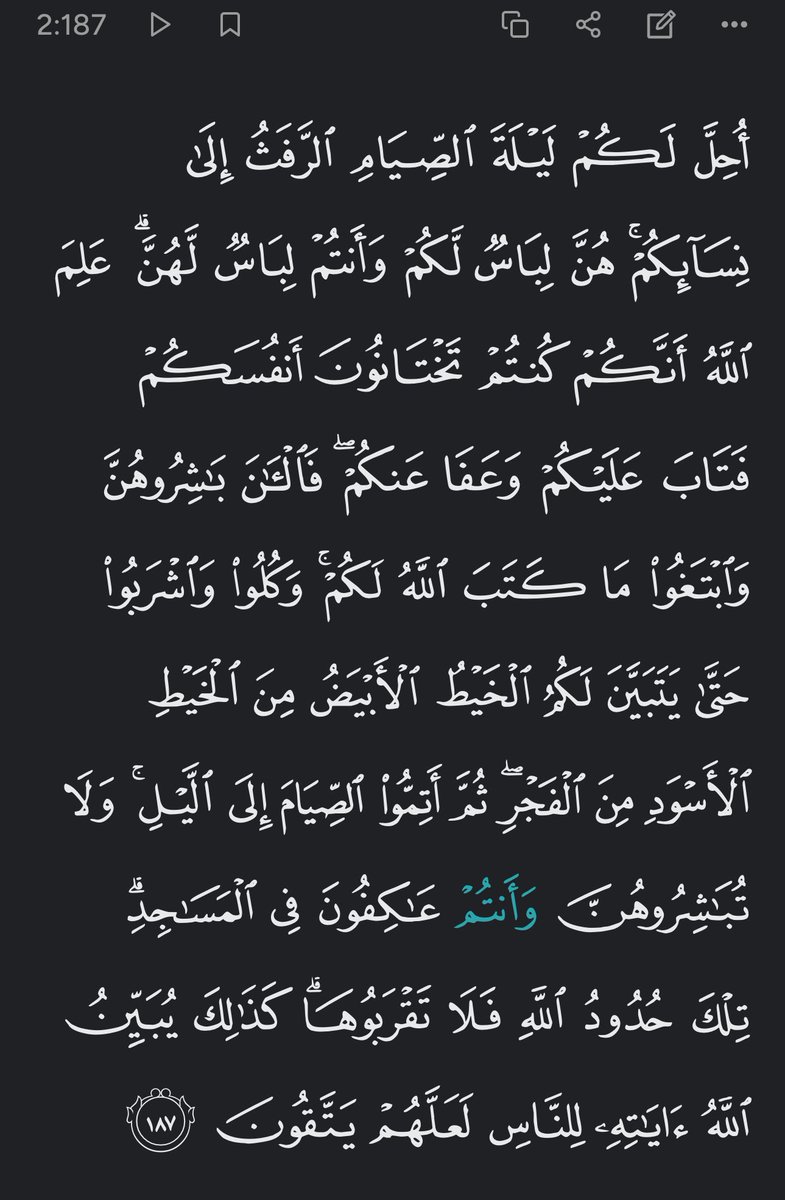 2:187
أُحِلَّ لَكُمۡ لَيۡلَةَ ٱلصِّيَامِ ٱلرَّفَثُ إِلَىٰ
نِسَآئِكُمۡۚ هُنَّ لِبَاسٞ لَّكُمۡ وَأَنتُمۡ لِبَاسٞ لَّهُنَّۗ عَلِمَ
ٱللَّهُ أَنَّكُمۡ كُنتُمۡ تَخۡتَانُونَ أَنفُسَكُمۡ
فَتَابَ عَلَيۡكُمۡ وَعَفَا عَنكُمۡۖ فَٱلۡـَٰٔنَ بَٰشِرُوهُنَّ
وَٱبۡتَغُواْ مَا كَتَبَ ٱللَّهُ لَكُمۡۚ وَكُلُواْ وَٱشۡرَبُواْ
حَتَّىٰ يَتَبَيَّنَ لَكُمُ ٱلۡخَيۡطُ ٱلۡأَبۡيَضُ مِنَ ٱلۡخَيۡطِ
ٱلۡأَسۡوَدِ مِنَ ٱلۡفَجۡرِۖ ثُمَّ أَتِمُّواْ ٱلصِّيَامَ إِلَى ٱلَّيۡلِۚ وَلَا
تُبَٰشِرُوهُنَّ وَأَنتُمۡ عَٰكِفُونَ فِي ٱلۡمَسَٰجِدِۗ
تِلۡكَ حُدُودُ ٱللَّهِ فَلَا تَقۡرَبُوهَاۗ كَذَٰلِكَ يُبَيِّنُ
ٱللَّهُ ءَايَٰتِهِۦ لِلنَّاسِ لَعَلَّهُمۡ يَتَّقُونَ ١٨٧